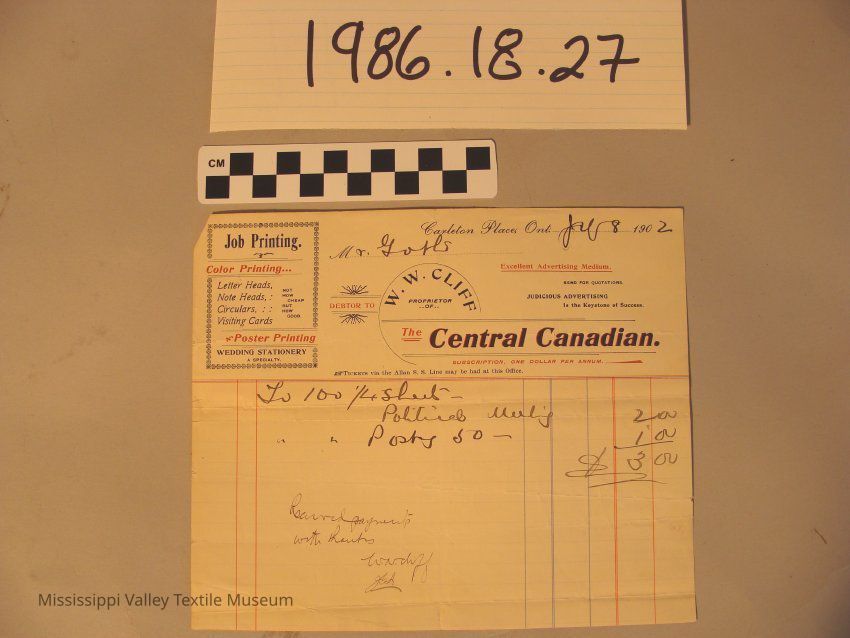 1986.18.27
CM
Job Printing.
Color Printing...
Letter Heads,
Note Heads, :
Circulars, : :
Visiting Cards
NOT
HOW
CHEAP
BUT
HOW
GOOD.
Poster Printing
WEDDING STATIONERY
A SPECIALTY.
Carleton Place, Ont. 8 1902
Mr.
DEBTOR TO
W. W. CLIFF
PROPRIETOR
--OF--
Excellent Advertising Medium.
SEND FOR QUOTATIONS.
JUDICIOUS ADVERTISING
Is the Keystone of Success.
The Central Canadian.
SUBSCRIPTION, ONE DOLLAR PER ANNUM.
TICKETS via the Allan S. S. Line may be had at this Office.
To 100 1/4 Sheet -
Political Meeting 2 00
" " Posting 50 - 1 00
$ 3 00
Received payment
with thanks
Mississippi Valley Textile Museum